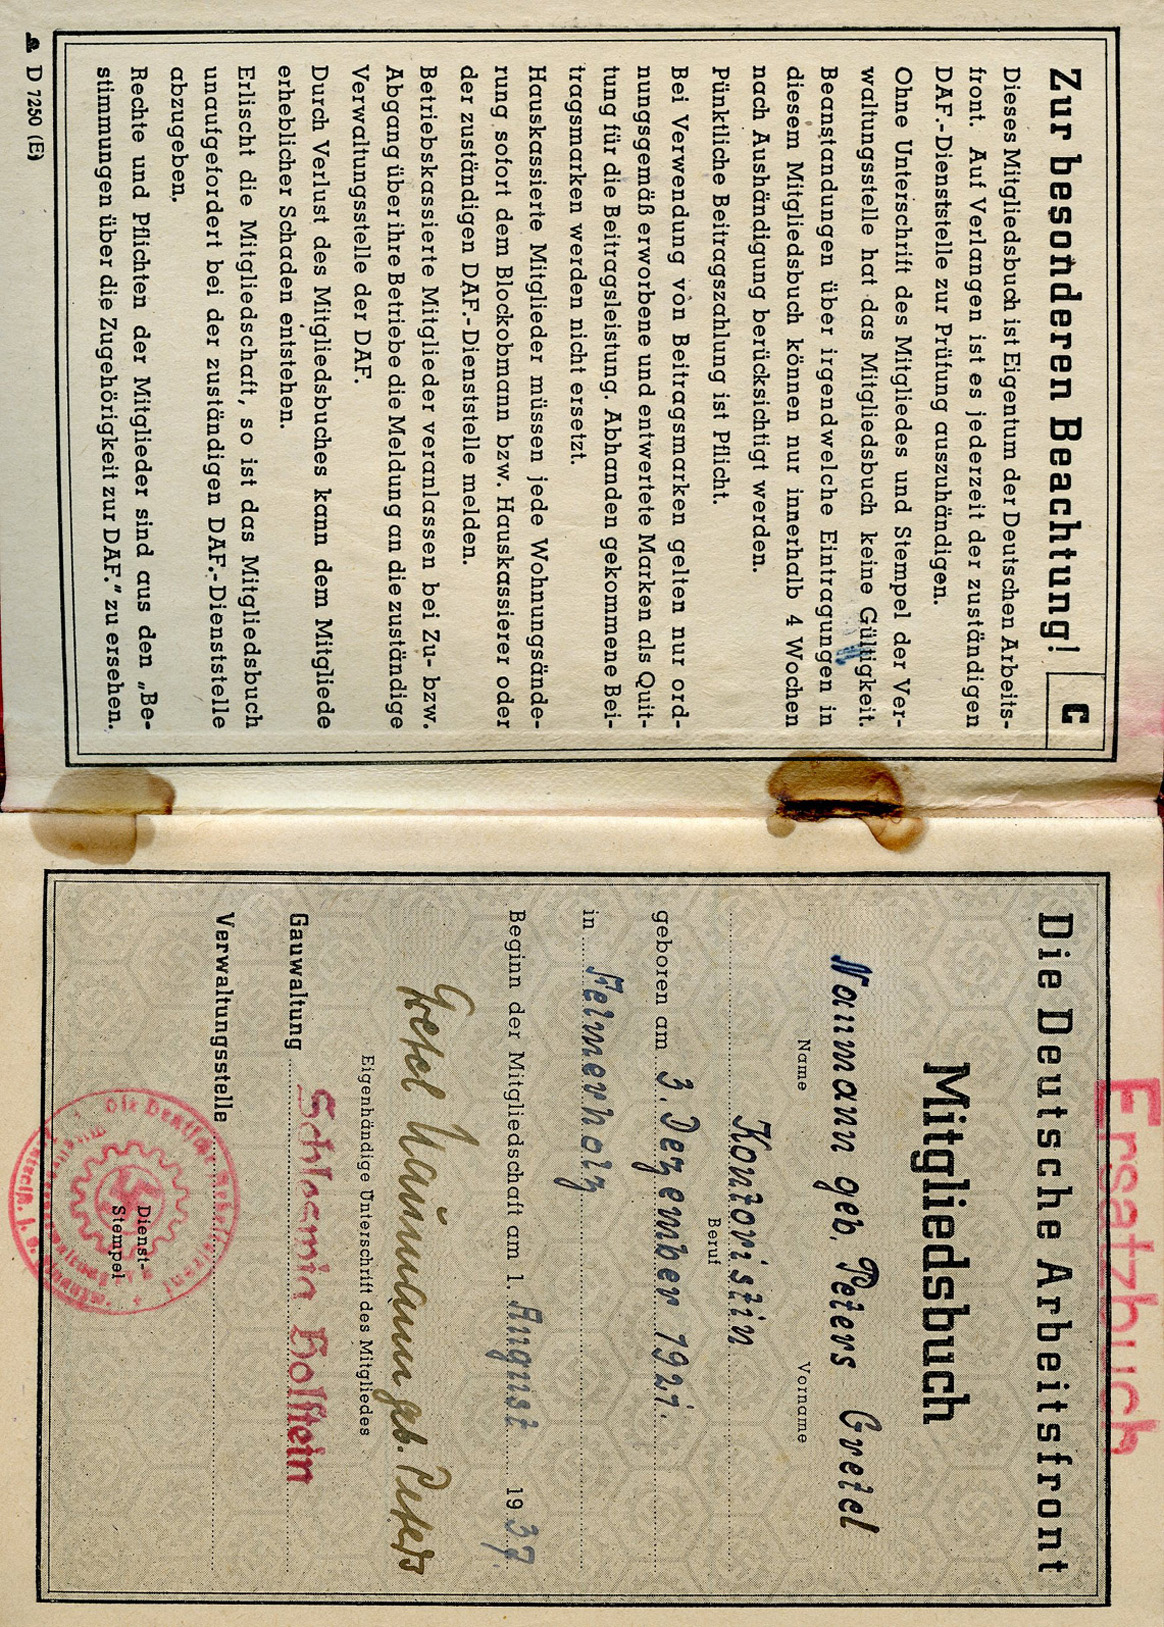 Zur besonderen Beachtung!
C
Dieses Mitgliedsbuch ist Eigentum der Deutschen Arbeits-
front. Auf Verlangen ist es jederzeit der zuständigen
DAF.-Dienststelle zur Prüfung auszuhändigen.
Ohne Unterschrift des Mitgliedes und Stempel der Ver-
waltungsstelle hat das Mitgliedsbuch keine Gültigkeit.
Beanstandungen über irgendwelche Eintragungen in
diesem Mitgliedsbuch können nur innerhalb 4 Wochen
nach Aushändigung berücksichtigt werden.
Pünktliche Beitragszahlung ist Pflicht.
Bei Verwendung von Beitragsmarken gelten nur ord-
nungsgemäß erworbene und entwertete Marken als Quit-
tung für die Beitragsleistung. Abhanden gekommene Bei-
tragsmarken werden nicht ersetzt.
Hauskassierte Mitglieder müssen jede Wohnungsände-
rung sofort dem Blockobmann bzw. Hauskassierer oder
der zuständigen DAF.-Dienststelle melden.
Betriebskassierte Mitglieder veranlassen bei Zu- bzw.
Abgang über ihre Betriebe die Meldung an die zuständige
Verwaltungsstelle der DAF.
Durch Verlust des Mitgliedsbuches kann dem Mitgliede
erheblicher Schaden entstehen.
Erlischt die Mitgliedschaft, so ist das Mitgliedsbuch
unaufgefordert bei der zuständigen DAF.-Dienststelle
abzugeben.
Rechte und Pflichten der Mitglieder sind aus den „Be-
stimmungen über die Zugehörigkeit zur DAF." zu ersehen.
D 7250 (E)
Ersatzbuch
Die Deutsche Arbeitsfront
Mitgliedsbuch
Naumann geb. Peters Gretel
Name Vorname
Kontoristin
Beruf
geboren am 3. Dezember 1921.
in Felmerholz
Beginn der Mitgliedschaft am 1. August 1937.
Gretel Naumann geb. Peters
Eigenhändige Unterschrift des Mitgliedes
Gauwaltung Schleswig Holstein
Verwaltungsstelle
Die Deutsche Arbeitsfront
Dienst-
Stempel